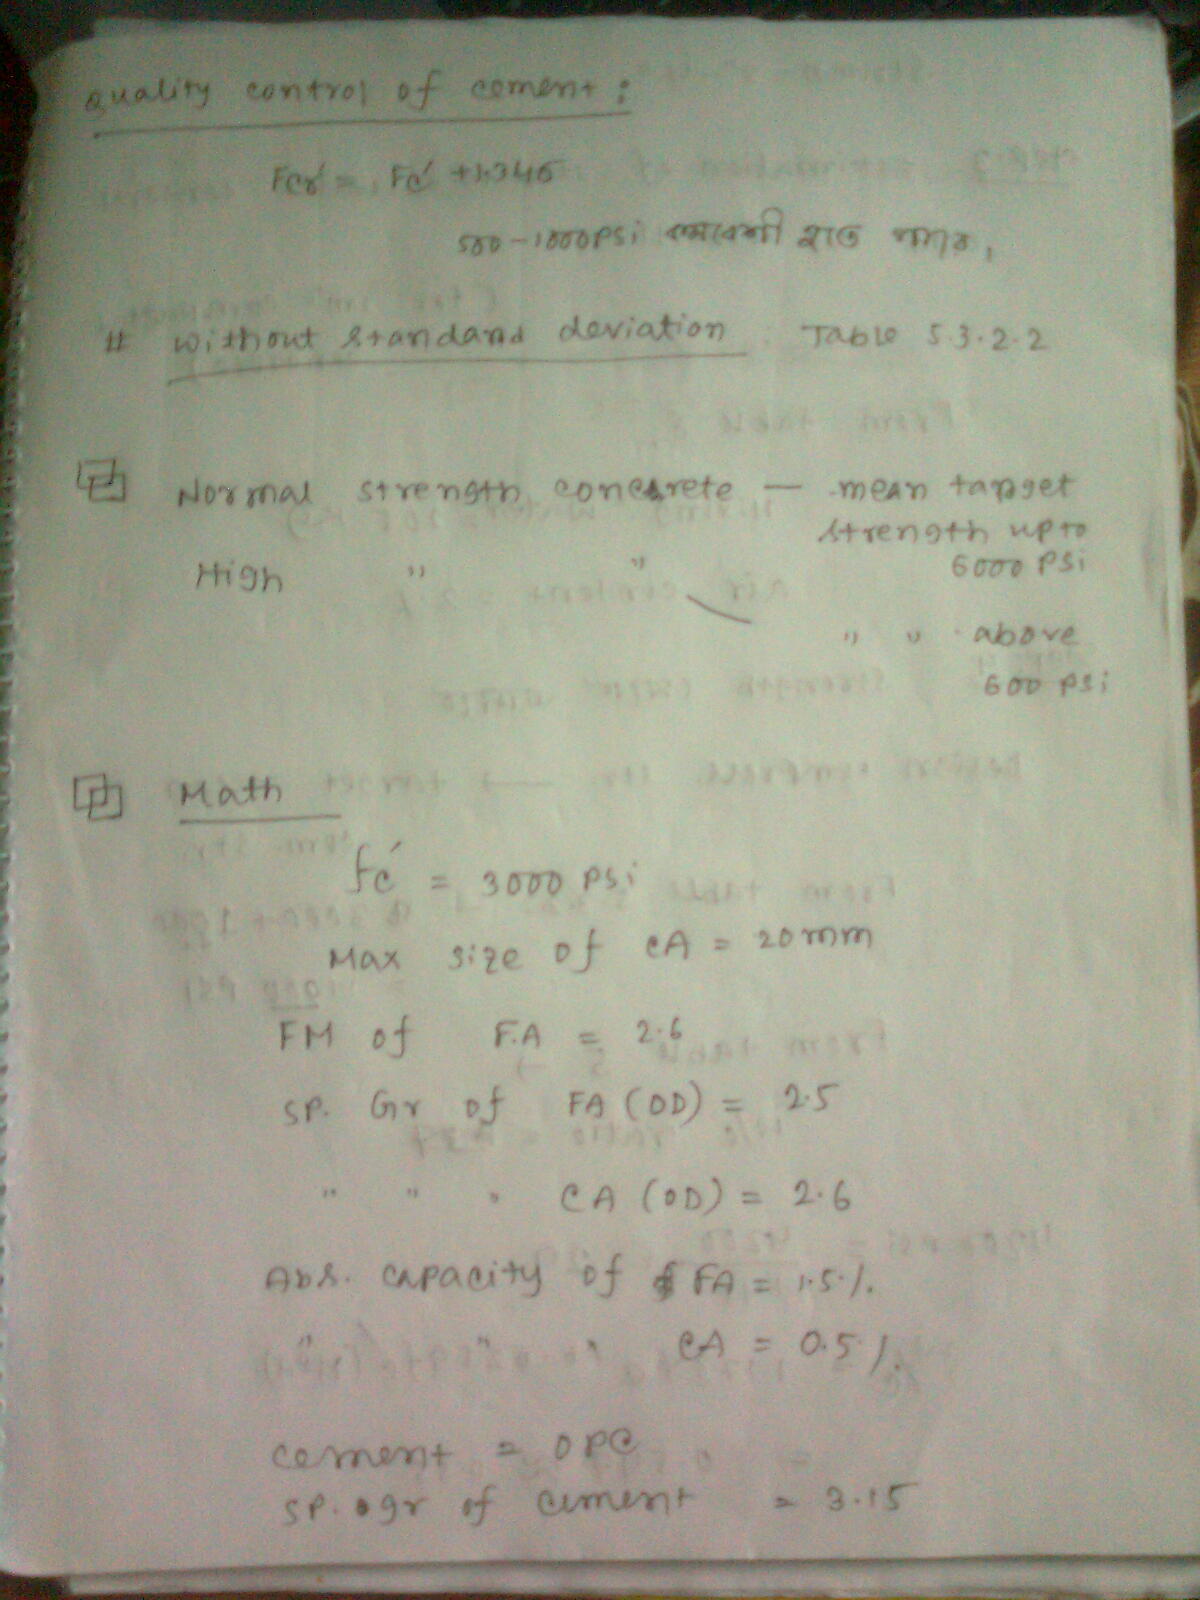 Quality control of cement:
Fcr' = Fc' + 1.34σ
500-1000 PSi কমবেশী হতে পারে,
# Without Standard deviation Table 5.3.2.2
Normal strength concrete — mean target
strength up to
6000 PSi
High " "
" " above
600 PSi
Math
fc' = 3000 PSi
Max size of CA = 20mm
FM of F.A = 2.6
SP. Gr of FA (OD) = 2.5
" " " CA (OD) = 2.6
Abs. capacity of FA = 1.5%.
" " " CA = 0.5%.
cement = OPC
SP. gr of cement = 3.15